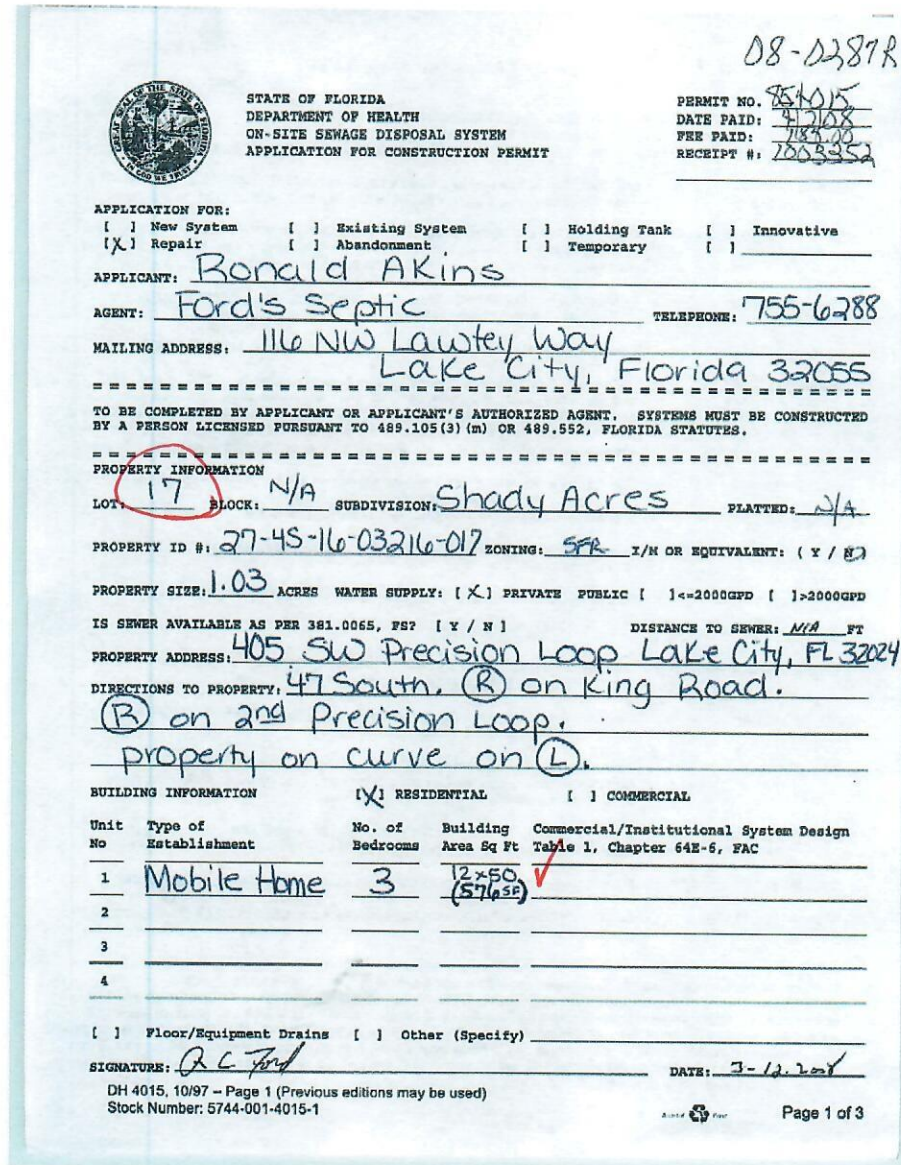 08-0287R
STATE OF FLORIDA
DEPARTMENT OF HEALTH
ON-SITE SEWAGE DISPOSAL SYSTEM
APPLICATION FOR CONSTRUCTION PERMIT
PERMIT NO. 854015
DATE PAID:
FEE PAID:
RECEIPT #: 1003352
APPLICATION FOR:
[ ] New System [ ] Existing System [ ] Holding Tank [ ] Innovative
[X] Repair [ ] Abandonment [ ] Temporary [ ]
APPLICANT: Ronald Akins
AGENT: Ford's Septic TELEPHONE: 755-6288
MAILING ADDRESS: 116 NW Lawtey Way
Lake City, Florida 32055
TO BE COMPLETED BY APPLICANT OR APPLICANT'S AUTHORIZED AGENT. SYSTEMS MUST BE CONSTRUCTED
BY A PERSON LICENSED PURSUANT TO 489.105(3)(m) OR 489.552, FLORIDA STATUTES.
PROPERTY INFORMATION
LOT: 17 BLOCK: N/A SUBDIVISION: Shady Acres PLATTED: N/A
PROPERTY ID #: 27-4S-16-03216-017 ZONING: SFR I/M OR EQUIVALENT: ( Y / N )
PROPERTY SIZE: 1.03 ACRES WATER SUPPLY: [X] PRIVATE PUBLIC [ ]<=2000GPD [ ]>2000GPD
IS SEWER AVAILABLE AS PER 381.0065, FS? [ Y / N ] DISTANCE TO SEWER: N/A FT
PROPERTY ADDRESS: 405 SW Precision Loop Lake City, FL 32024
DIRECTIONS TO PROPERTY: 47 South. (R) on King Road.
(R) on 2nd Precision Loop.
property on curve on (L).
BUILDING INFORMATION [X] RESIDENTIAL [ ] COMMERCIAL
Unit Type of No. of Building Commercial/Institutional System Design
No Establishment Bedrooms Area Sq Ft Table 1, Chapter 64E-6, FAC
1 Mobile Home 3 12x50
(576 SF)
2
3
4
[ ] Floor/Equipment Drains [ ] Other (Specify)
SIGNATURE: R C Ford DATE: 3-12-2008
DH 4015, 10/97 – Page 1 (Previous editions may be used)
Stock Number: 5744-001-4015-1 Page 1 of 3